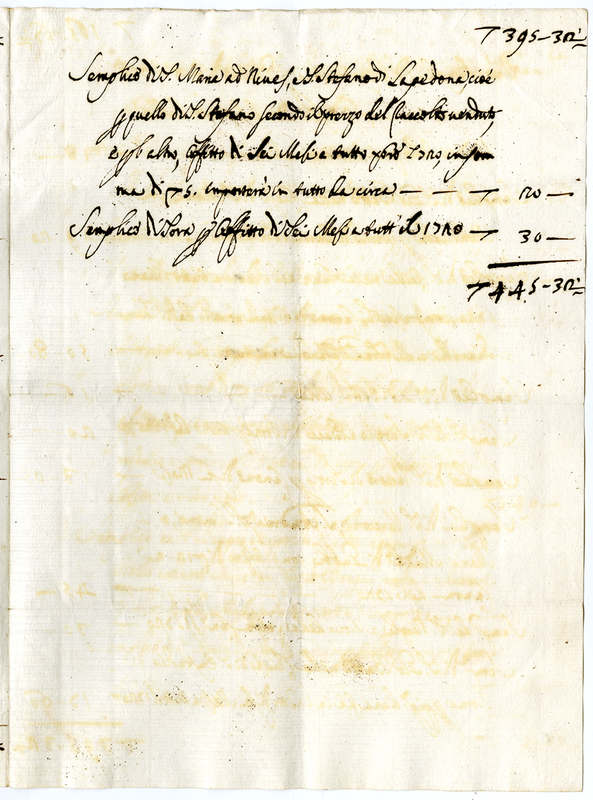 395-30
Semplice di S. Maria ad Nives, e S. Stefano di Lapedona, cioè
quello di S. Stefano secondo il prezzo del Raccolto venduto,
altro, Affitto di Sei Mesi a tutto 1720 in som
ma di 75. importerà in tutto da circa — — 20 —
Semplice di Affitto di Sei Mesi a tutt' il 1720 — 30 —
445-30